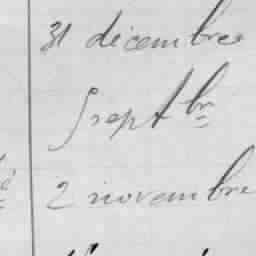 31 décembre
5 sept br
2 novembre